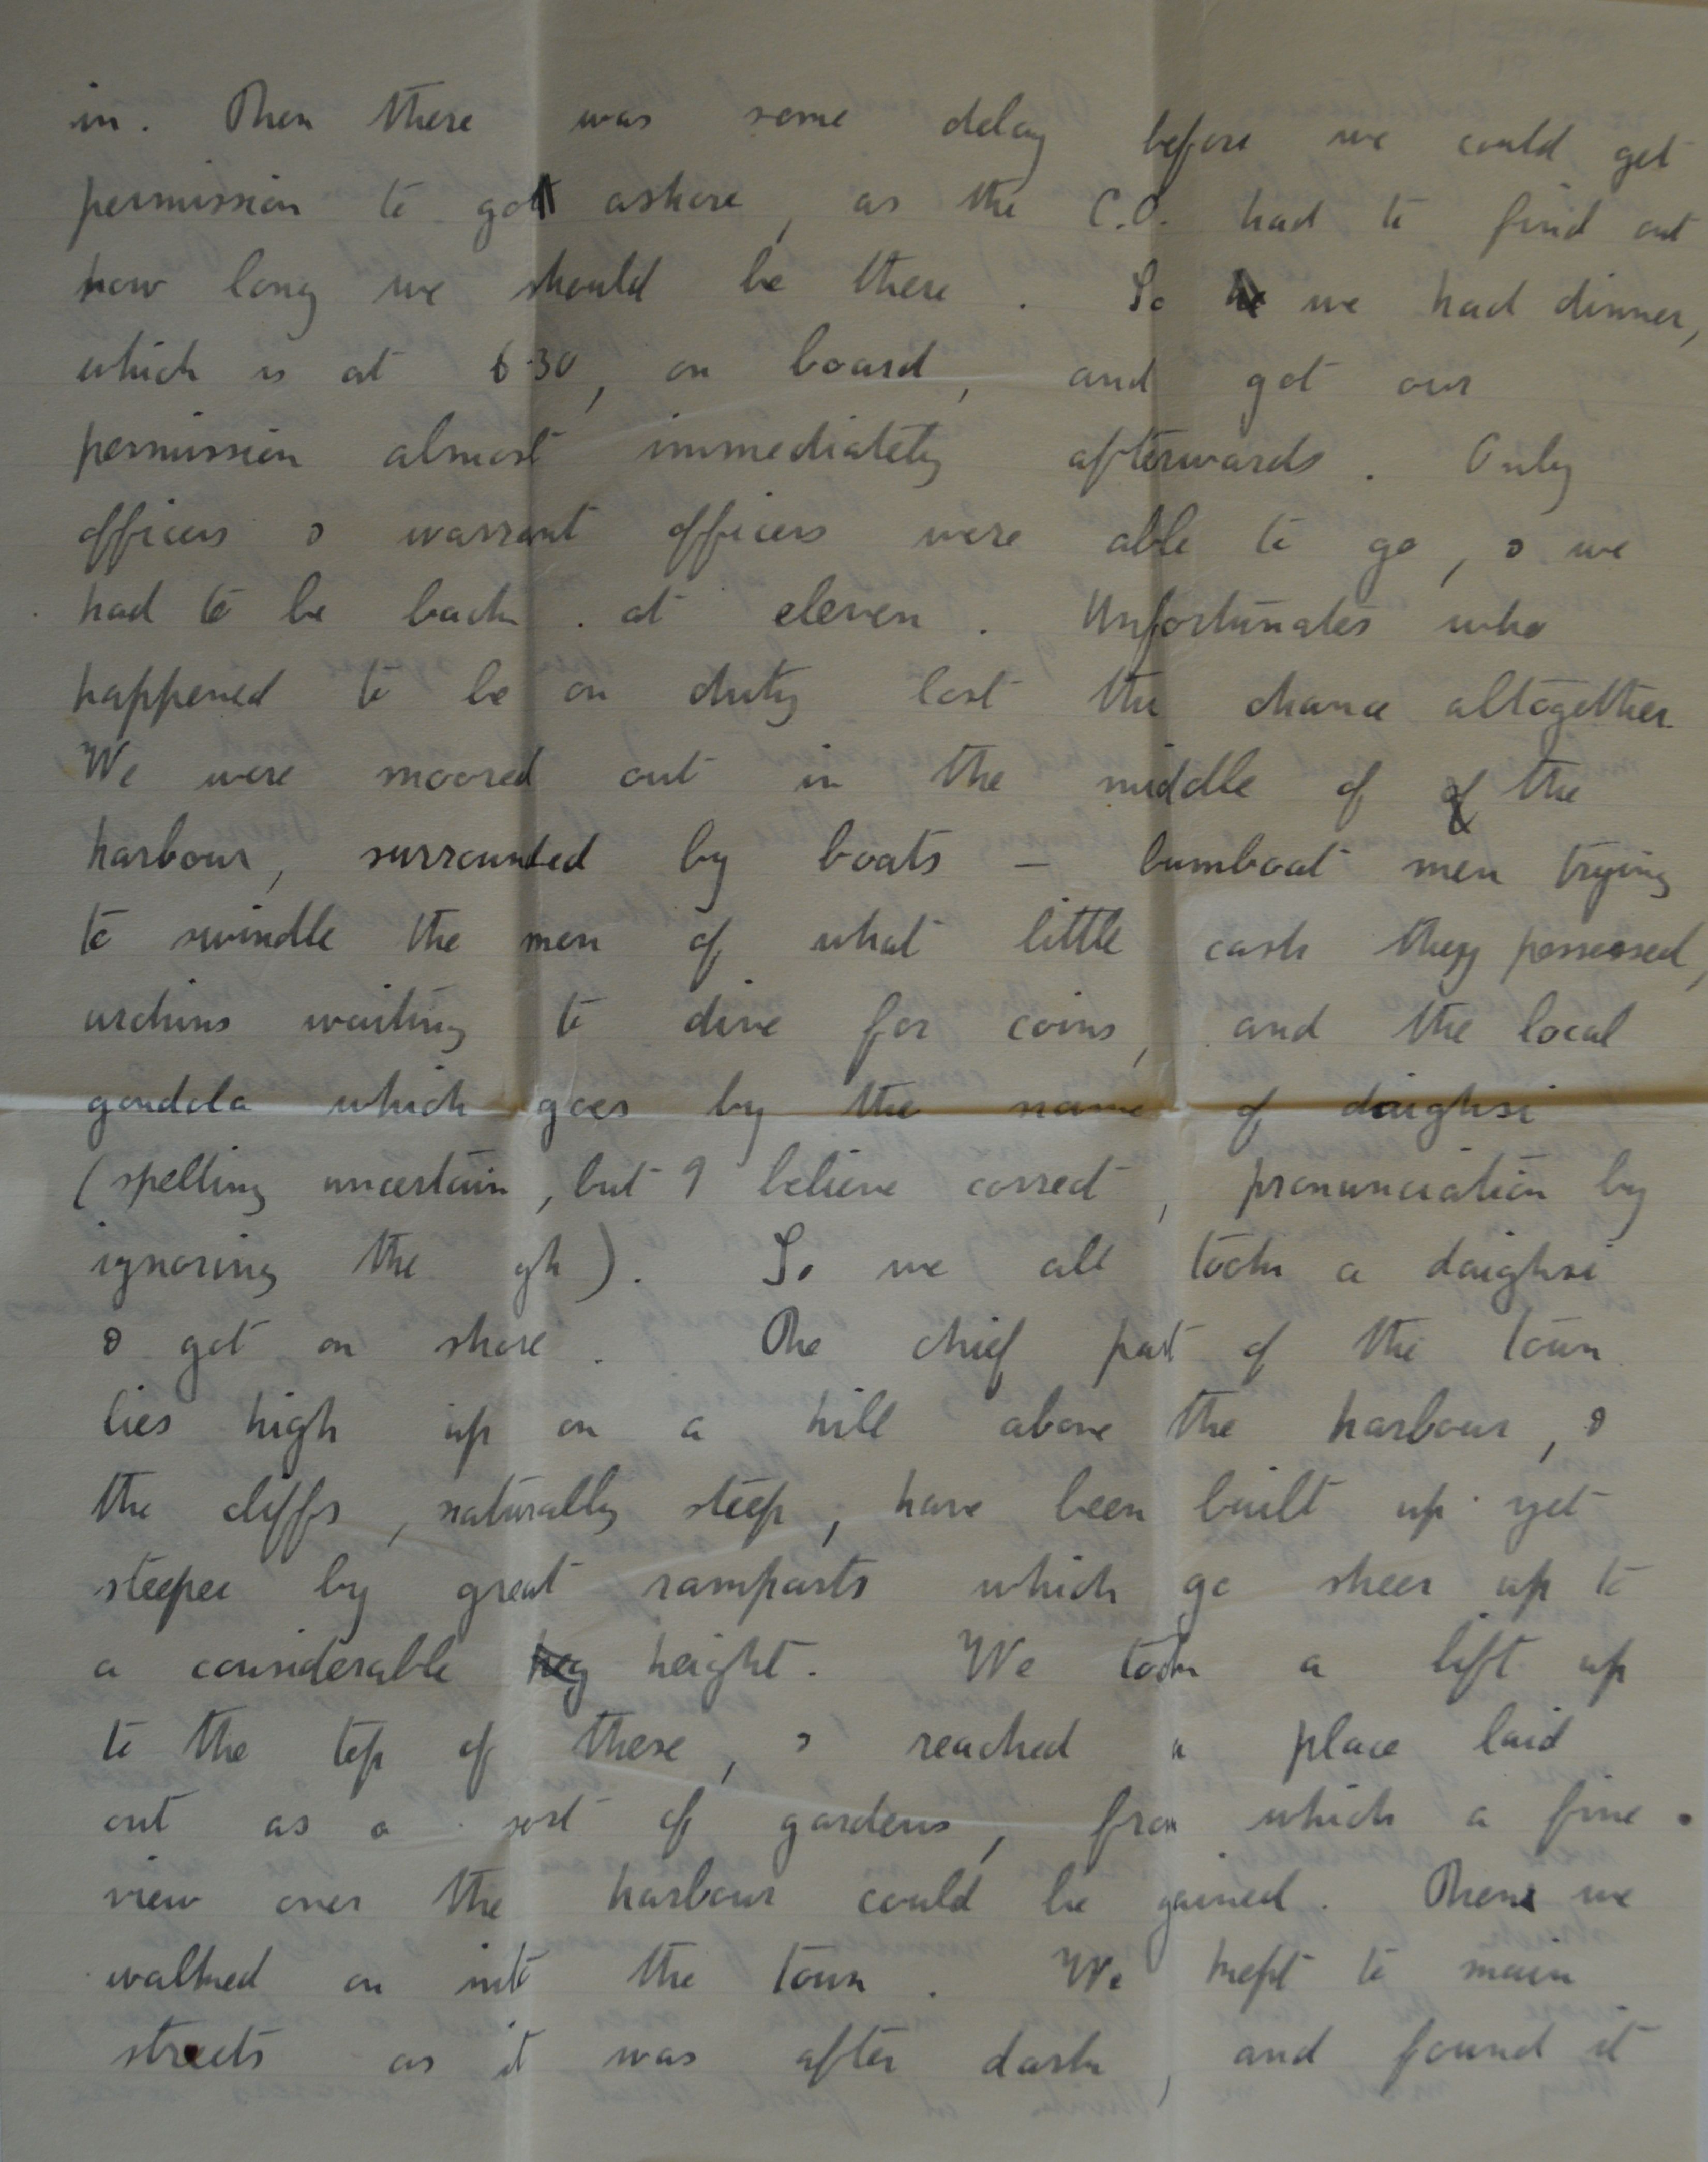 in. Then there was some delay before we could get
permission to go ashore, as the C.O. had to find out
how long we should be there. So we had dinner,
which is at 6.30, on board, and got our
permission almost immediately afterwards. Only
officers & warrant officers were able to go, & we
had to be back at eleven. Unfortunates who
happened to be on duty lost the chance altogether.
We were moored out in the middle of the
harbour, surrounded by boats – bumboat men trying
to swindle the men of what little cash they possessed,
urchins waiting to dive for coins, and the local
gondola which goes by the name of daighsi
(spelling uncertain, but I believe correct, pronunciation by
ignoring the gh). So we all took a daighsi
& got on shore. The chief part of the town
lies high up on a hill above the harbour, &
the cliffs, naturally steep, have been built up yet
steeper by great ramparts which go sheer up to
a considerable height. We took a lift up
to the top of these, & reached a place laid
out as a sort of gardens, from which a fine
view over the harbour could be gained. Then we
walked on into the town. We kept to main
streets as it was after dark, and found it